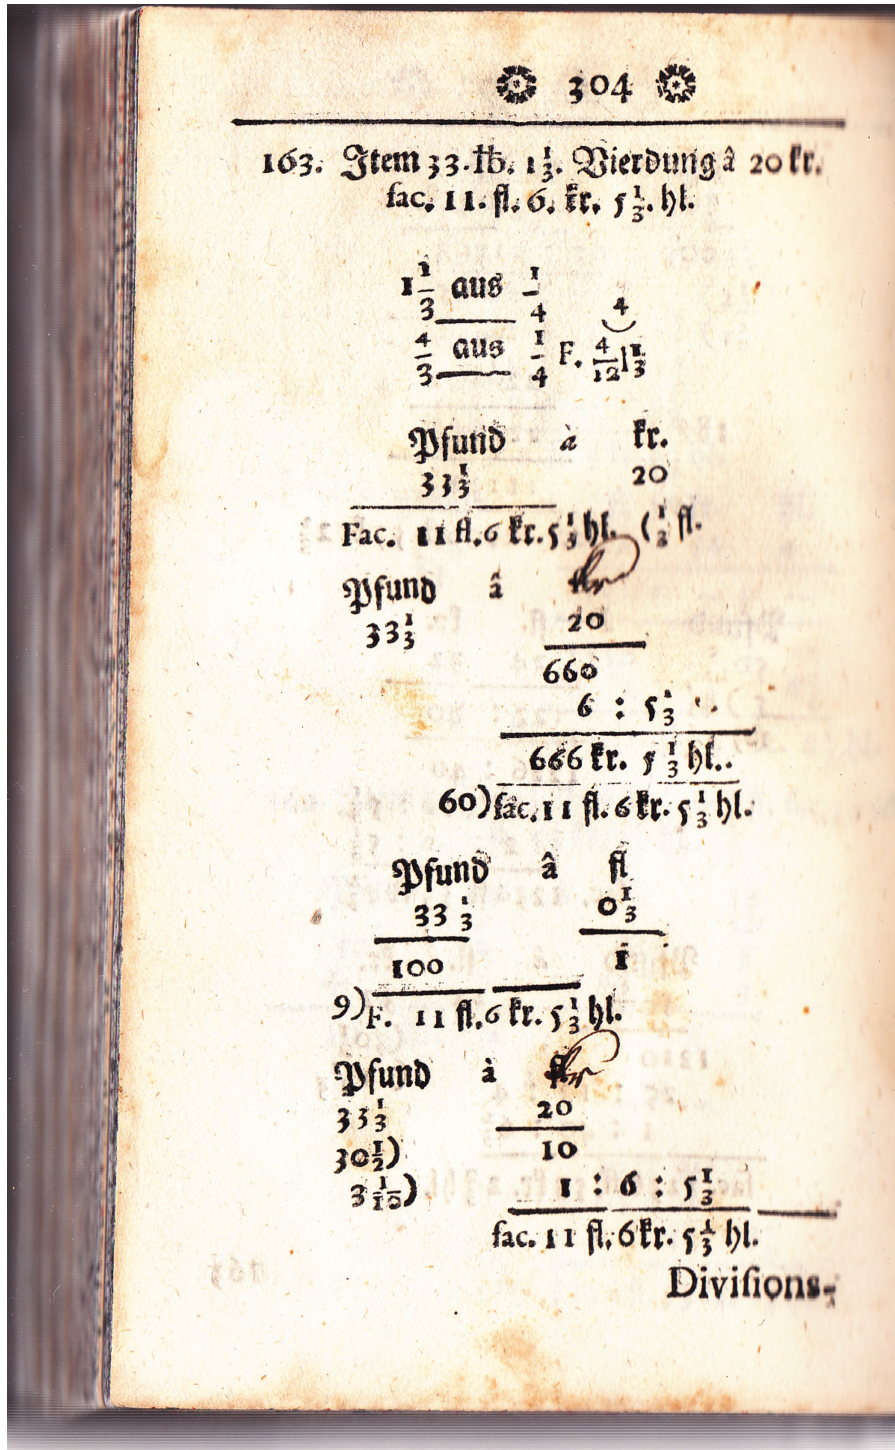 304
163. Item 33. ℔. 1 1/3. Vierdung â 20 kr.
fac. 11. fl. 6. kr. 5 1/3. hl.
1 1/3 aus 1/4
4
4/3 aus 1/4 F. 4/12 | 1/3
Pfund à kr.
33 1/3 20
Fac. 11 fl. 6 kr. 5 1/3 hl. (1/3 fl.
Pfund â kr
33 1/3 20
660
6 : 5 1/3
666 kr. 5 1/3 hl.
60) fac. 11 fl. 6 kr. 5 1/3 hl.
Pfund â fl
33 1/3 0 1/3
100 1
9) F. 11 fl. 6 kr. 5 1/3 hl.
Pfund à kr
33 1/3 20
30 1/2) 10
3 1/10) 1 : 6 : 5 1/3
fac. 11 fl. 6 kr. 5 1/3 hl.
Divisions-